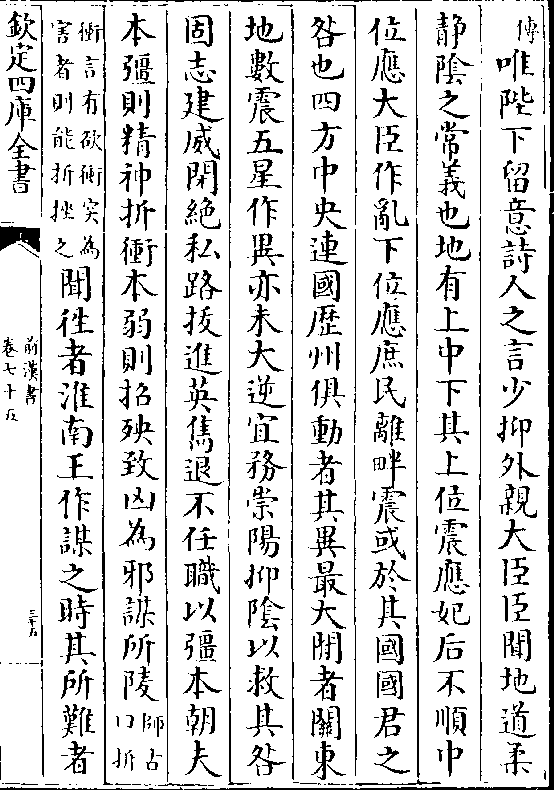 傳唯陛下留意詩人之言少抑外親大臣臣聞地道柔
静陰之常義也地有上中下其上位震應妃后不順中
位應大臣作亂下位應庶民離畔震或於其國國君之
咎也四方中央連國歴州俱動者其異最大間者關東
地數震五星作異亦未大逆宜務崇陽抑陰以救其咎
固志建威閉絶私路拔進英雋退不任職以彊本朝夫
本彊則精神折衝本弱則招殃致凶為邪謀所陵師古曰折
衝言有欲衝突為
害者則能折挫之聞徃者淮南王作謀之時其所難者
欽定四庫全書
前漢書
卷七十五
三十五